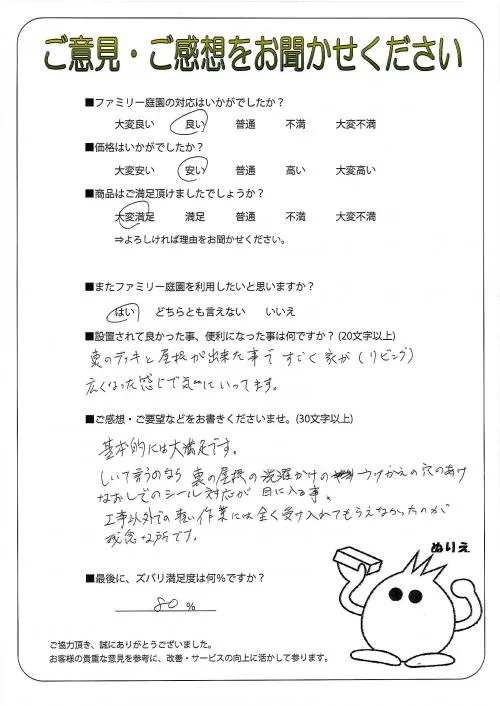 ご意見・ご感想をお聞かせください
■ファミリー庭園の対応はいかがでしたか？
大変良い 良い 普通 不満 大変不満
■価格はいかがでしたか？
大変安い 安い 普通 高い 大変高い
■商品はご満足頂けましたでしょうか？
大変満足 満足 普通 不満 大変不満
⇒よろしければ理由をお聞かせください。
■またファミリー庭園を利用したいと思いますか？
はい どちらとも言えない いいえ
■設置されて良かった事、便利になった事は何ですか？(20文字以上)
裏のデッキと屋根が出来た事ですごく家が(リビング)
広くなった感じで気にいってます。
■ご感想・ご要望などをお書きくださいませ。(30文字以上)
基本的には大満足です。
しいて言うのなら 裏の屋根の洗濯かけの つけかえの穴のあけ
なおしでのシール対応が 目に入る事。
工事以外での軽い作業には全く受け入れてもらえなかったのが
残念な所です。
ぬりえ
■最後に、ズバリ満足度は何%ですか？
80 %
ご協力頂き、誠にありがとうございました。
お客様の貴重な意見を参考に、改善・サービスの向上に活かして参ります。